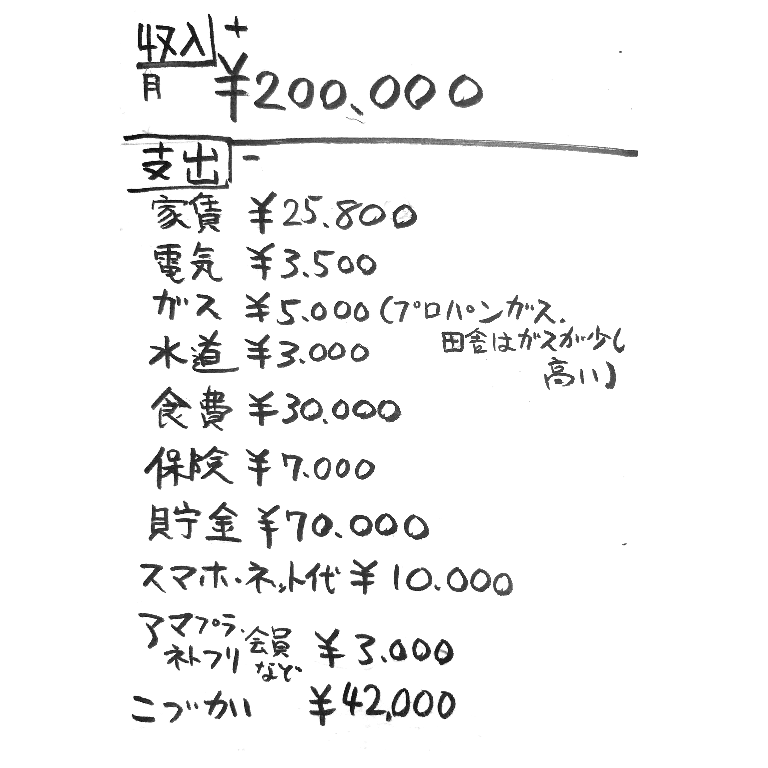 収入 +
月 ¥200,000
支出 -
家賃 ¥25.800
電気 ¥3.500
ガス ¥5.000 (プロパンガス.
田舎はガスが少し
高い)
水道 ¥3.000
食費 ¥30.000
保険 ¥7.000
貯金 ¥70.000
スマホ・ネット代 ¥10.000
アマプラ.
ネトフリ 会員など ¥3.000
こづかい ¥42,000